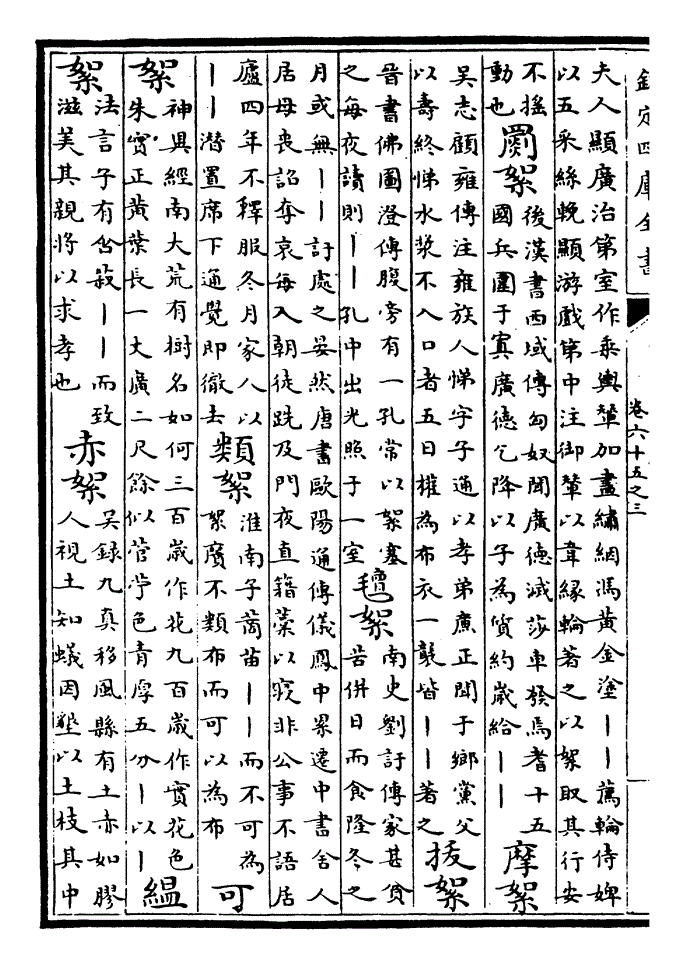 欽定四庫全書
卷六十五之三
夫人顯廣治第室作乘輿輦加畫繡絪馮黃金塗丨丨薦輪侍婢
以五采絲輓顯游戲第中注御輦以韋緣輪著之以絮取其行安
不搖
動也
罽絮
後漢書西域傳匈奴聞廣德滅莎車發焉耆十五
國兵圍于窴廣德乞降以子為質約歲給丨丨
摩絮
吳志顧雍傳注雍族人悌字子通以孝弟廉正聞于鄉黨父
以壽終悌水漿不入口者五日權為布衣一襲皆丨丨著之
拔絮
晉書佛圖澄傳腹旁有一孔常以絮塞
之每夜讀則丨丨孔中出光照于一室
氊絮
南史劉訏傳家甚貧
苦併日而食隆冬之
月或無丨丨訏處之晏然唐書歐陽通傳儀鳳中累遷中書舍人
居母喪詔奪哀每入朝徒跣及門夜直籍藁以寢非公事不語居
廬四年不釋服冬月家人以
丨丨潛置席下通覺即徹去
類絮
淮南子蔐苗丨丨而不可為
絮黂不類布而可以為布
可
絮
神異經南大荒有樹名如何三百歲作花九百歲作實花色
朱實正黃葉長一丈廣二尺餘似菅苧色青厚五分丨以丨
緼
絮
法言子有含菽丨丨而致
滋美其親將以求孝也
赤絮
吳錄九真移風縣有土赤如膠
人視土知蟻因墾以土枝其中